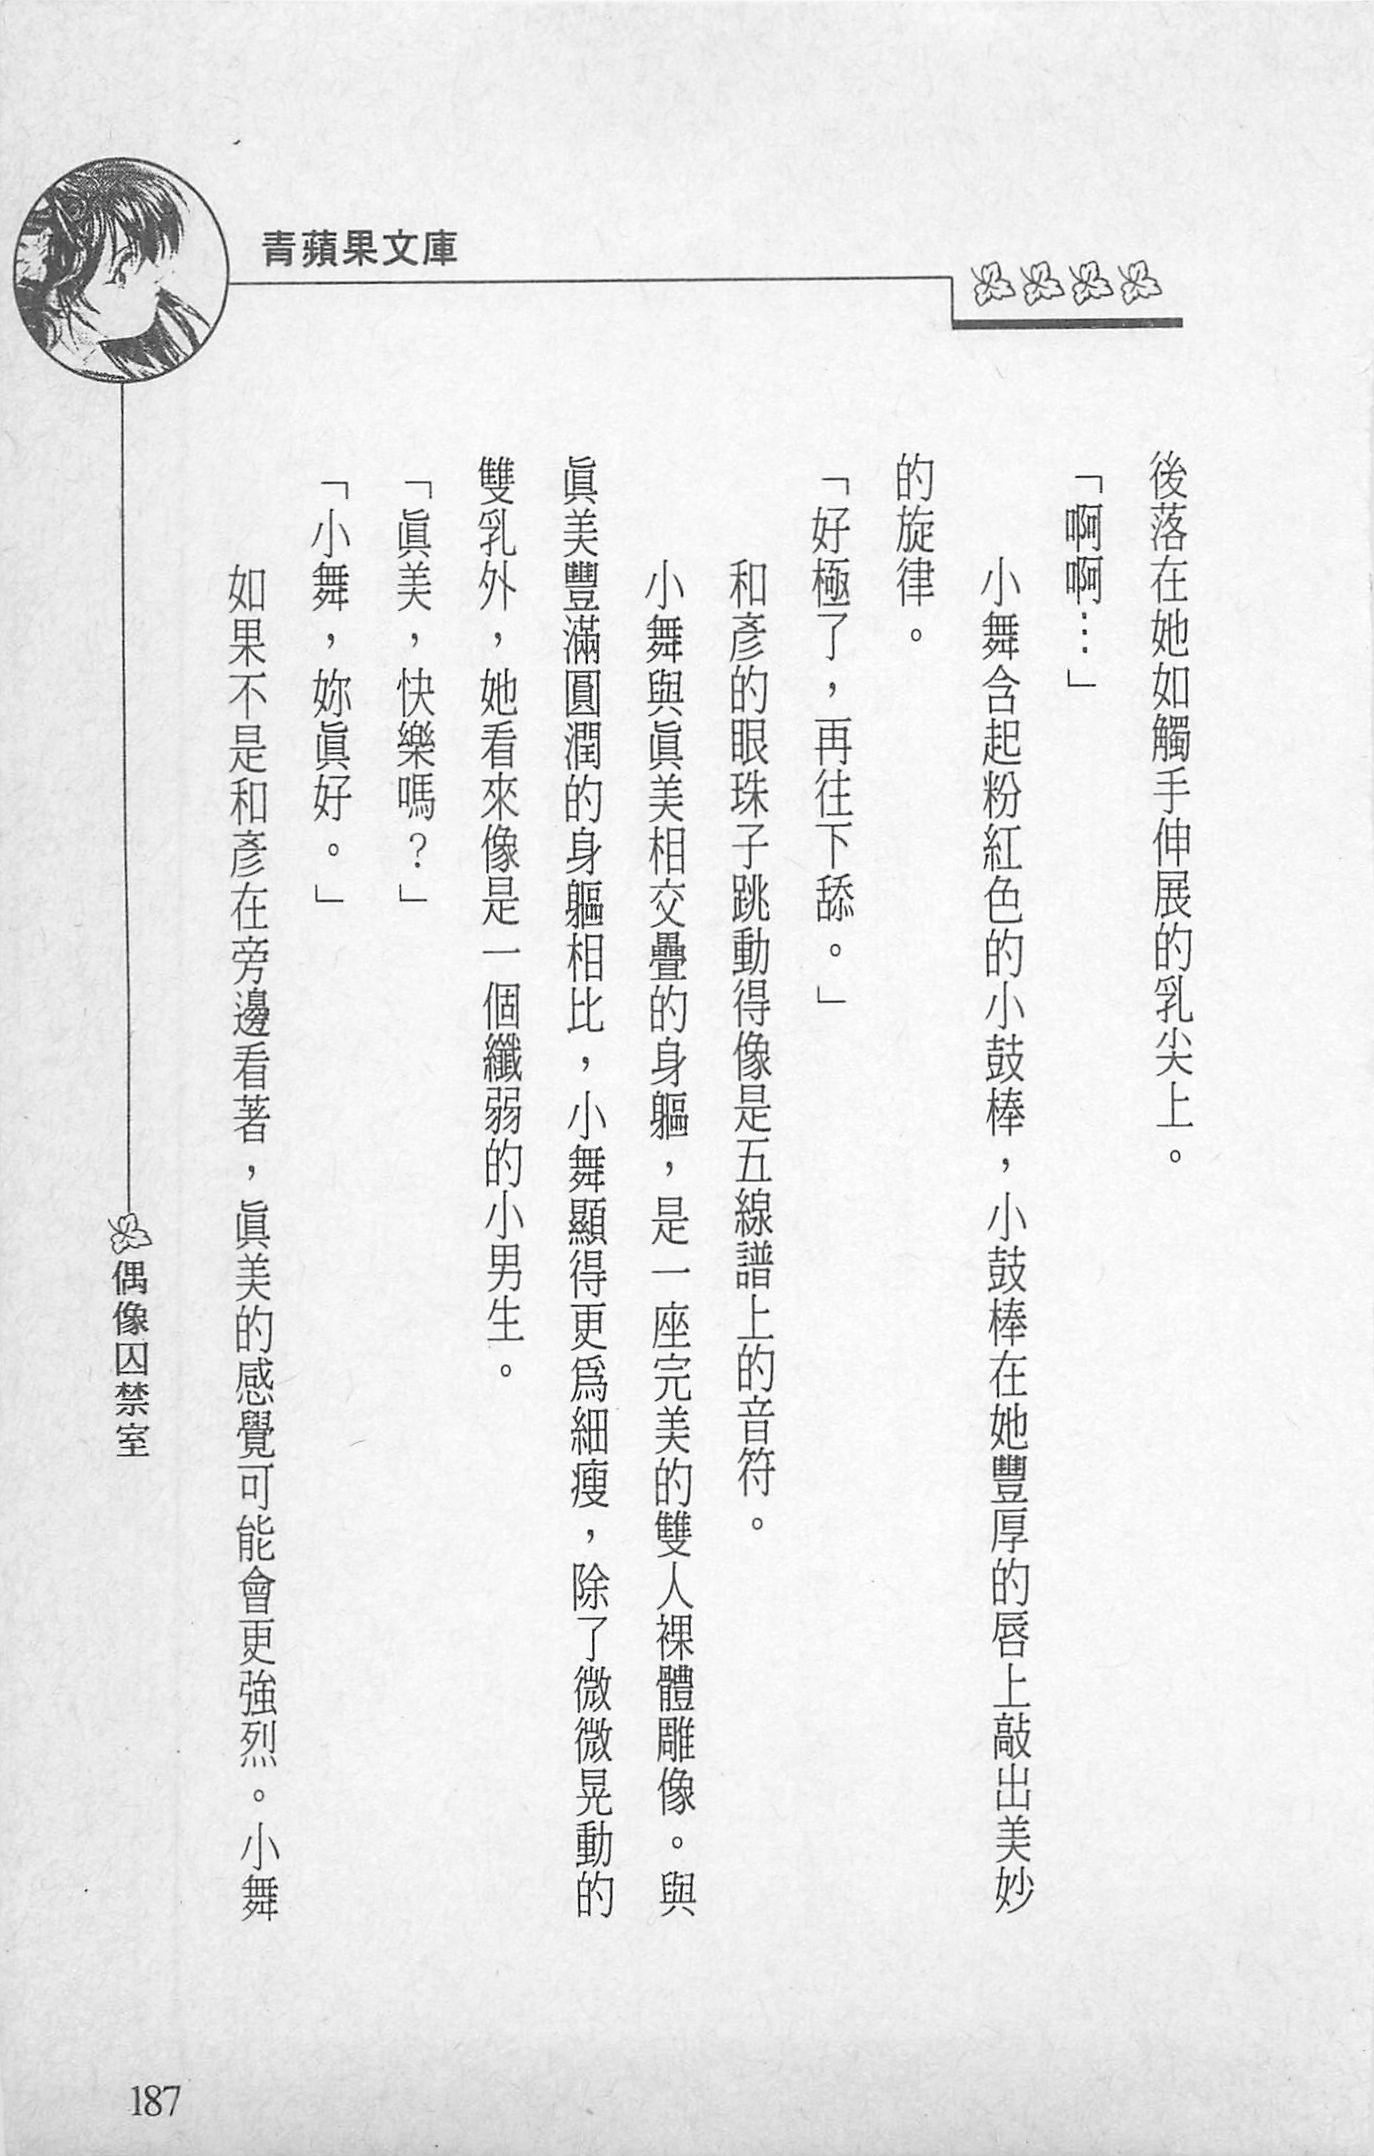 青蘋果文庫
後落在她如觸手伸展的乳尖上。
「啊啊…」
小舞含起粉紅色的小鼓棒，小鼓棒在她豐厚的唇上敲出美妙
的旋律。
「好極了，再往下舔。」
和彥的眼珠子跳動得像是五線譜上的音符。
小舞與眞美相交疊的身軀，是一座完美的雙人裸體雕像。與
眞美豐滿圓潤的身軀相比，小舞顯得更爲細瘦，除了微微晃動的
雙乳外，她看來像是一個纖弱的小男生。
「眞美，快樂嗎？」
「小舞，妳眞好。」
如果不是和彥在旁邊看著，眞美的感覺可能會更強烈。小舞
偶像囚禁室
187